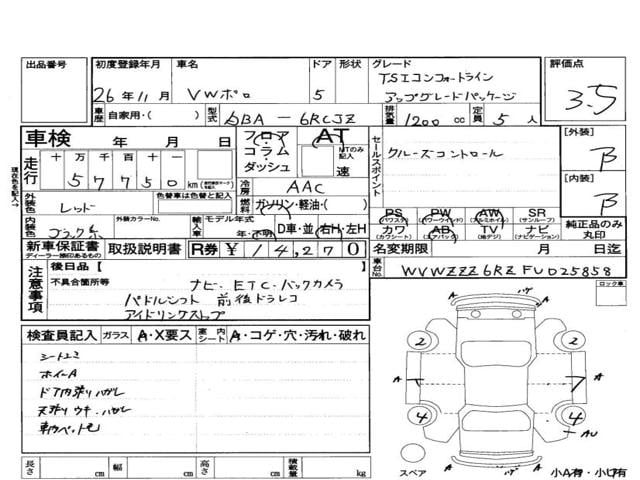 出品番号 初度登録年月 車名 ドア 形状 グレード 評価点
26年11月 VWポロ 5 TSIコンフォートライン
アップグレードパッケージ 3.5
車歴 自家用・( ) 型式 DBA-6RCJZ 排気量 1200 cc 定員 5 人
車検 年 月 日 フロア AT セールスポイント [外装]
コラム・ MTのみ記入
ダッシュ 速 クルーズコントロール B
走行 十 万 千 百 十 一
57750 km 冷房 AAC [内装]
外装色 色替車は色替と記入 燃料 ガソリン・軽油・( ) B
レッド
PS PW AW SR
(パワステ) (パワーウインド) (アルミホイル) (サンルーフ)
内装色 ブラック系 外装カラーNo. 輸入車 モデル年式 年・不明 D車・並 右H・左H カワ AB TV ナビ 純正品のみ丸印
(カワシート) (エアバック) (地デジ) (ナビゲーション)
新車保証書 取扱説明書 R券 ¥14,270 名変期限 月 日迄
ディーラー捺印あるもの
現在色を記入→
注意事項 後日品【 】 車台No. WVWZZZ6RZFU025858
不具合箇所等 ナビ、ETC、バックカメラ
パドルシフト 前後ドラレコ
アイドリングストップ
ロック車
検査員記入 ガラス A・X要ス 室内シート A・コゲ・穴・汚れ・破れ
ホイールA
ドア内張りハガレ
天張りウキ・ハガレ
車内ペット毛
A ハゲ A
2 2
A A
4 4
AU
A ハゲ A
スペア 小A有・小凹有
長さ cm 幅 cm 高さ cm 積載量 kg